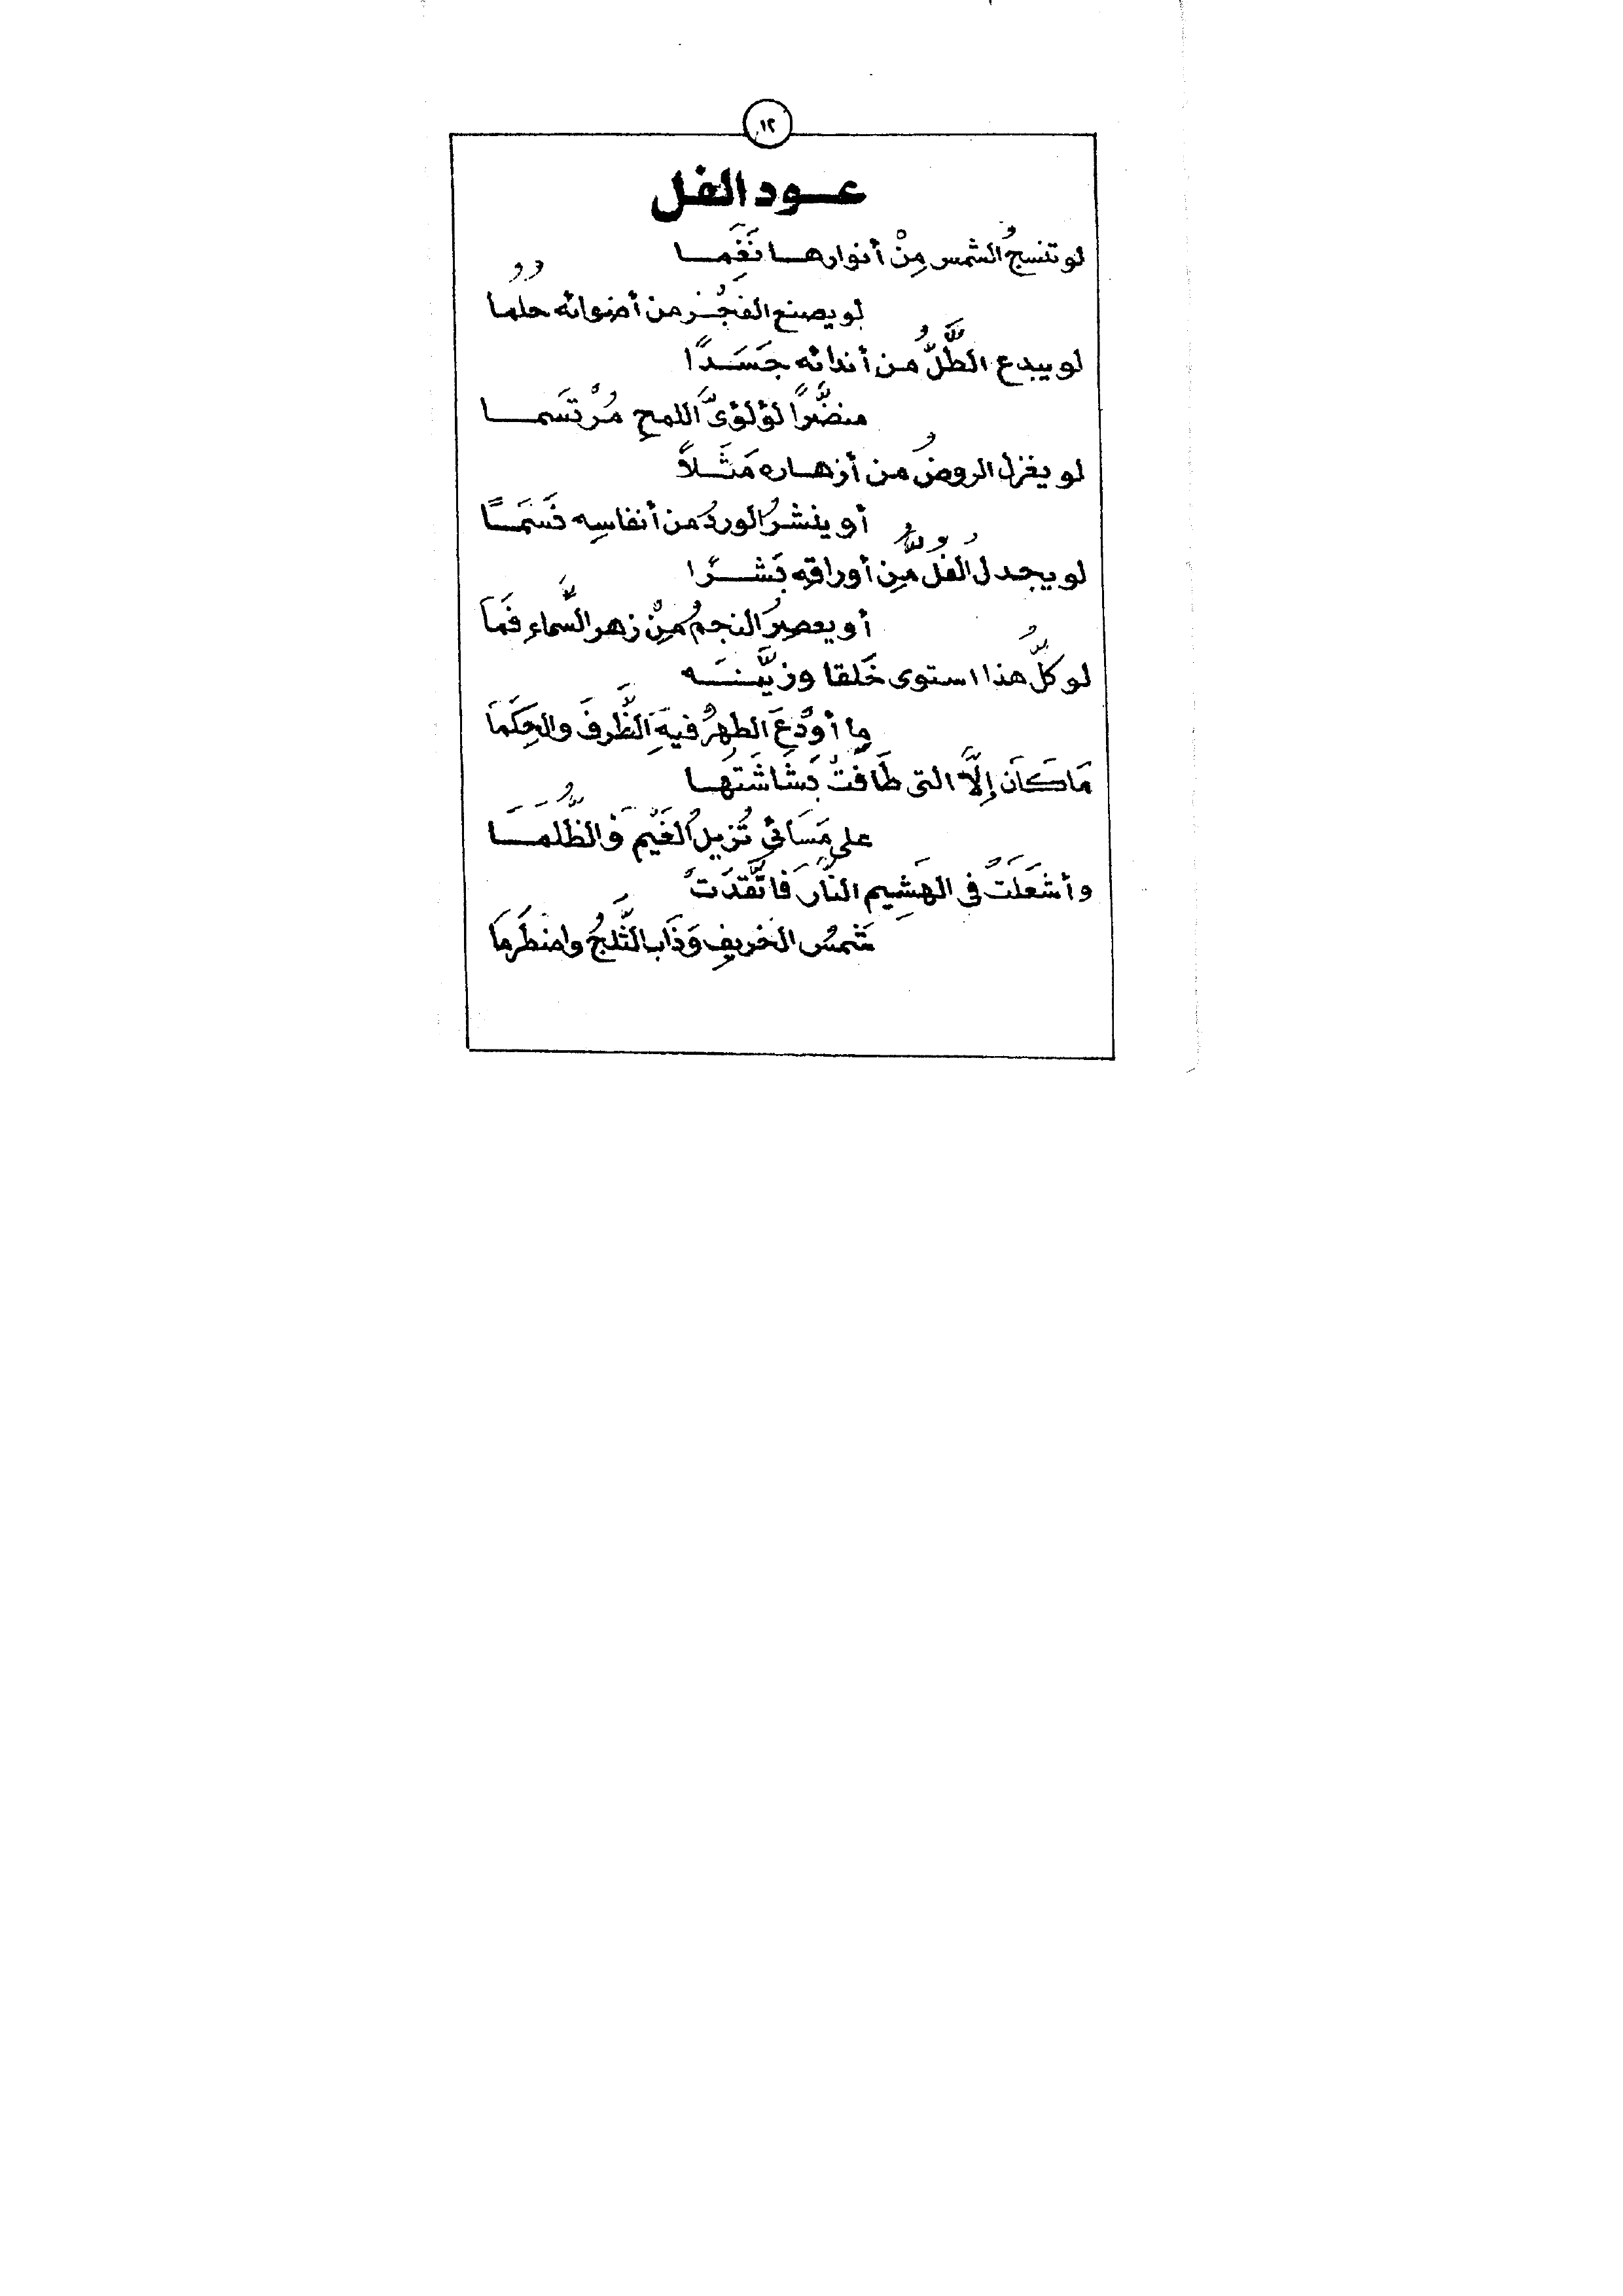 ١٢
عود الفل
لو تنسجُ الشمس مِنْ أنوارها نَغَمَا
لو يصنع الفجْر من أضوائه حلُمُا
لو يبدع الطَّلُّ من أندائه جَسَدًا
منضَّرًا لؤلؤىَّ اللمحِ مُرْتَسَما
لو يغزل الروضُ من أزهاره مَثَلاً
أو ينشرُ الوردُ من أنفاسِه نَسَمًا
لو يجدل الفُلُّ مِن أوراقِه بَشَرًا
أو يعصِرُ النجمُ مِنْ زهر السَّماءِ فَمَا
لو كلُّ هذا استوى خَلقا وزيَّنَه
ما أوْدَعَ الطهرُ فيهِ الظَّرفَ والحِكَمَا
مَا كَانَ إلَّا التى طَافَتْ بَشَاشَتُهَا
على مَسَائى تُزيلُ الغَيْمَ والظُّلَمَا
وأشعَلَتْ فى الهَشِيمِ النَّارَ فَاتَّقدَتْ
شَمسُ الخريفِ وَذَابَ الثَّلجُ واضطَرمَا